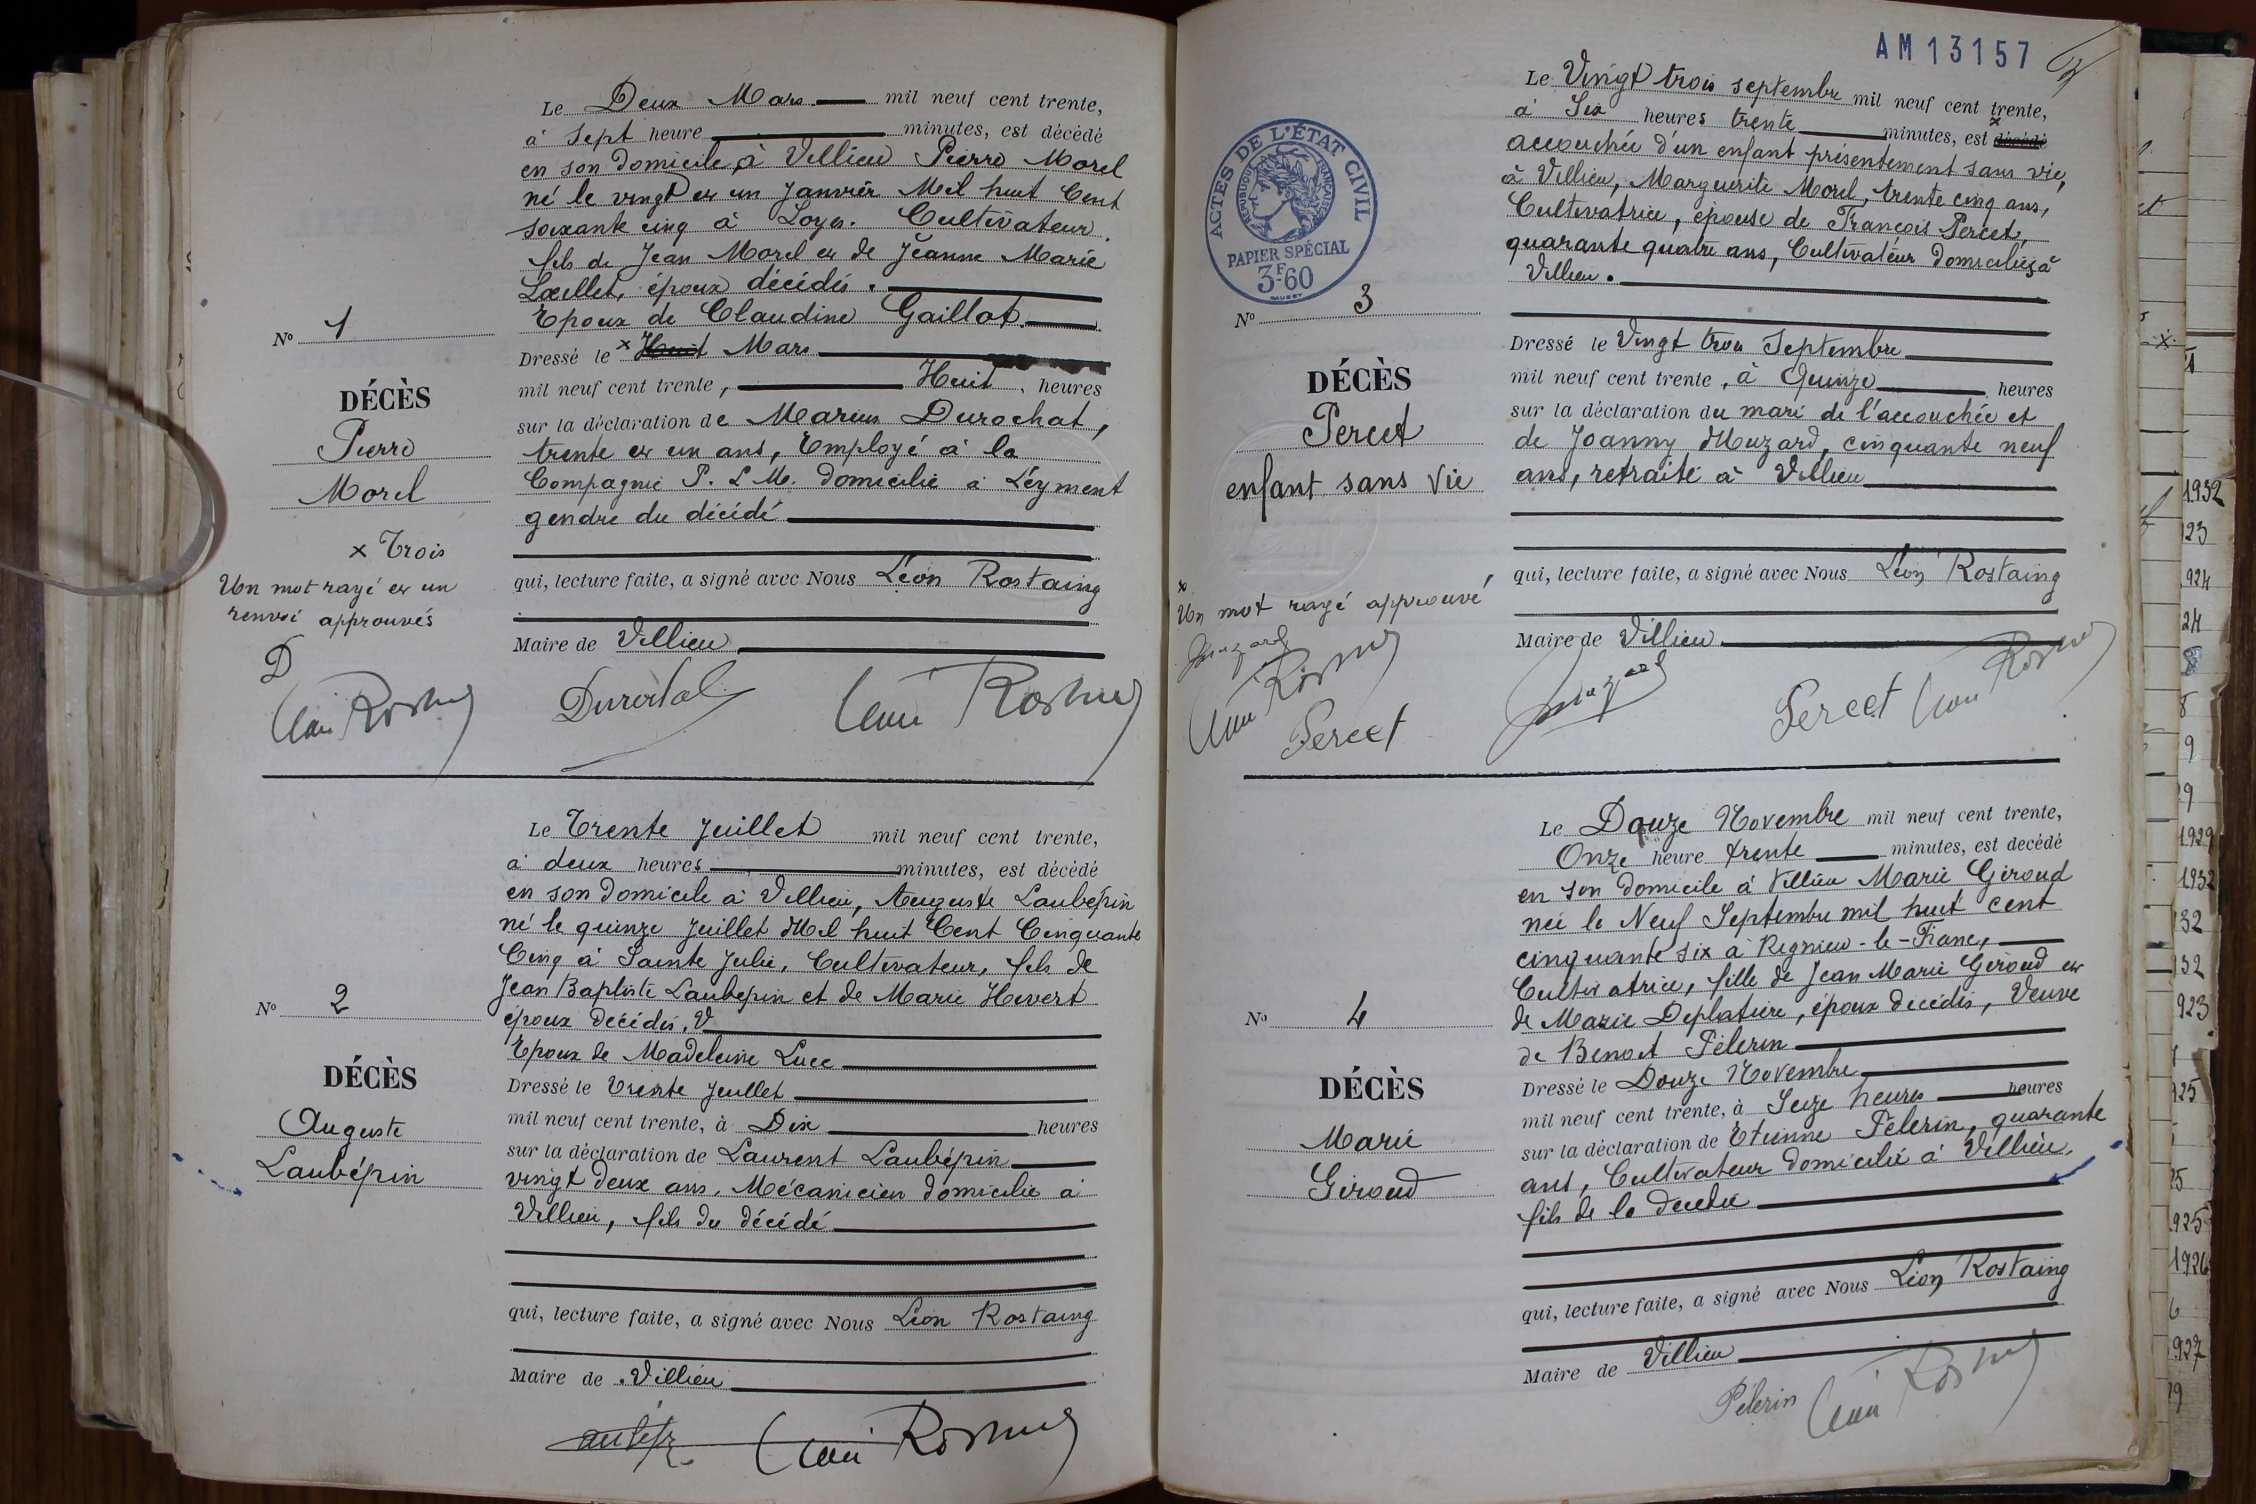 Le Deux Mars mil neuf cent trente,
à sept heure minutes, est décédé
en son domicile à Villieu Pierre Morel
né le vingt et un Janvier Mil huit Cent
soixante cinq à Loyes. Cultivateur.
fils de Jean Morel et de Jeanne Marie
Lœillet, époux décédés.
Epoux de Claudine Gaillot
Nº 1
Dressé le x Huit Mars
mil neuf cent trente, Huit heures
DÉCÈS
sur la déclaration de Marius Durochat,
Pierre
trente et un ans, Employé à la
Morel
Compagnie P. L M. domicilié à Léyment
gendre du décédé
x Trois
Un mot rayé et un
renvoi approuvés
qui, lecture faite, a signé avec Nous Léon Rostaing
Maire de Villieu
D
Le Trente Juillet mil neuf cent trente,
à deux heures minutes, est décédé
en son domicile à Villieu, Auguste Laubépin
né le quinze Juillet Mil huit Cent Cinquante
Cinq à Sainte Julie, Cultivateur, fils de
Jean Baptiste Laubépin et de Marie Hevert
Nº 2
époux décédés, V
Epoux de Madeleine Luce
DÉCÈS
Dressé le trente Juillet
Auguste
mil neuf cent trente, à Dix heures
Laubépin
sur la déclaration de Laurent Laubépin
vingt deux ans, Mécanicien domicilié à
Villieu, fils du décédé
qui, lecture faite, a signé avec Nous Léon Rostaing
Maire de Villieu
AM 13157
Le Vingt trois septembre mil neuf cent trente,
à Six heures trente minutes, est x décédé
accouchée d'un enfant présentement sans vie,
à Villieu, Marguerite Morel, trente cinq ans,
Cultivatrice, épouse de François Percet,
quarante quatre ans, Cultivateur domiciliés à
Villieu.
ACTES DE L'ÉTAT CIVIL
RÉPUBLIQUE FRANÇAISE
PAPIER SPÉCIAL
3F60
Nº 3
Dressé le Vingt trois Septembre
DÉCÈS
mil neuf cent trente, à Quinze heures
Percet
sur la déclaration du mari de l'accouchée et
de Joanny Muzard, cinquante neuf
enfant sans vie
ans, retraité à Villieu
qui, lecture faite, a signé avec Nous Léon Rostaing
x
Un mot rayé approuvé
Maire de Villieu
Muzard
Percet
Muzard
Percet
Le Douze Novembre mil neuf cent trente,
Onze heure trente minutes, est decédé
en son domicile à Villieu Marie Giroud
née le Neuf Septembre mil huit cent
cinquante six à Rignieu-le-Franc,
Cultivatrice, fille de Jean Marie Giroud et
de Marie Deplatière, époux décédés, Veuve
de Benoit Pélerin
Nº 4
Dressé le Douze Novembre
DÉCÈS
mil neuf cent trente, à Seize heures heures
Marie
sur la déclaration de Etienne Pélerin, quarante
Giroud
ans, Cultivateur domicilié à Villieu,
fils de la decedée
qui, lecture faite, a signé avec Nous Léon Rostaing
Maire de Villieu
Pélerin
1932
23
924
24
8
9
9
1929
1932
132
132
923
925
25
925
1926
6
927
29